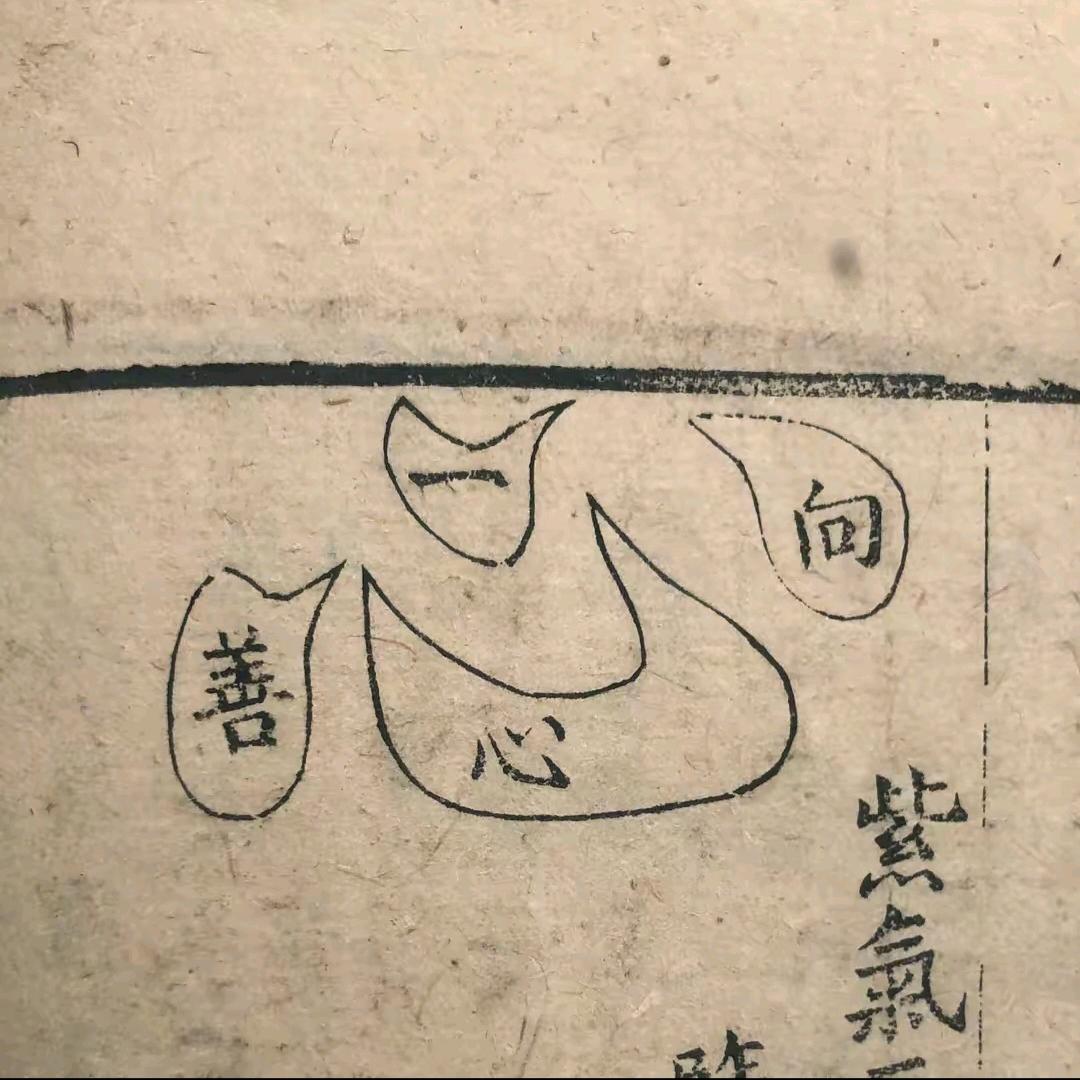 一心向善
紫氣